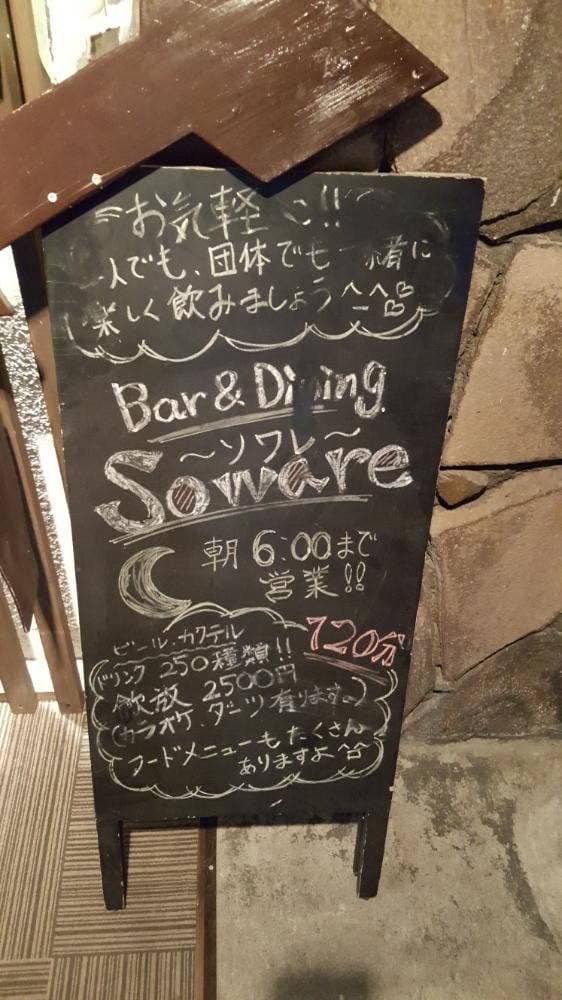 お気軽に!!
一人でも、団体でも一緒に
楽しく飲みましょう^_^
Bar & Dining
～ソワレ～
Soware
朝6:00まで
営業!!
ビール、カクテル
ドリンク250種類!!
120分
飲放 2500円
カラオケ、ダーツ有ります
フードメニューもたくさん
ありますよ^^